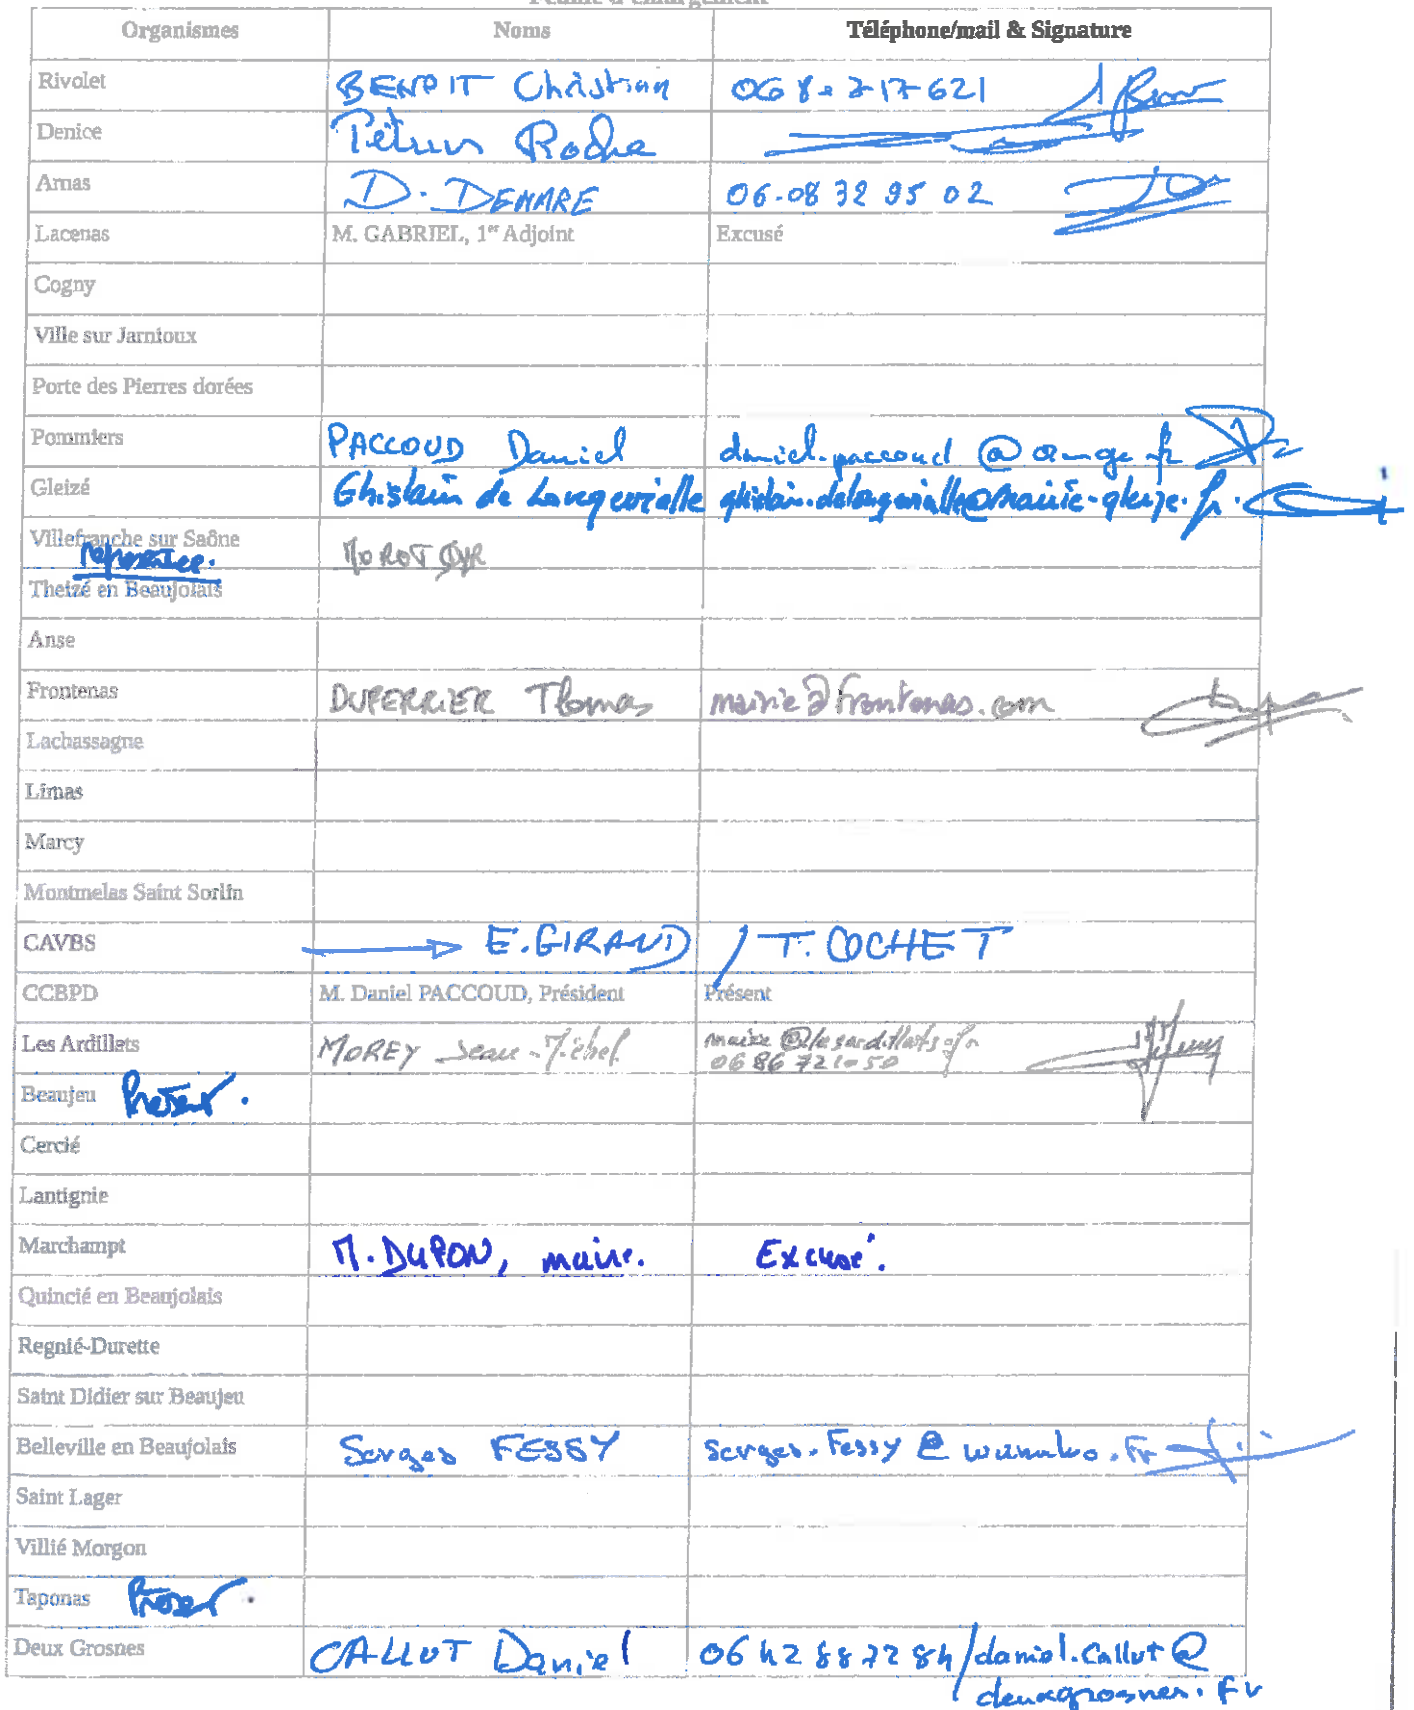 Feuille d'émargement
Organismes Noms Téléphone/mail & Signature
Rivolet BENOIT Christian 068 217 621
Denice Roche
Arnas D. DEMARE 06-08 32 95 02
Lacenas M. GABRIEL, 1er Adjoint Excusé
Cogny
Ville sur Jarnioux
Porte des Pierres dorées
Pommiers PACCOUD Daniel daniel.paccoud@orange.fr
Gleizé Ghislain de Longevialle ghislain.delongevialle@mairie-gleize.fr
Villefranche sur Saône
représentée.
Theizé en Beaujolais
Anse
Frontenas DUPERRIER Thomas mairie@frontenas.com
Lachassagne
Limas
Marcy
Montmelas Saint Sorlin
CAVBS E. GIRAUD / T. COCHET
CCBPD M. Daniel PACCOUD, Président Présent
Les Ardillats MOREY Jean-Michel mairie@lesardillats.fr
06 86 721050
Beaujeu Présent.
Cercié
Lantignie
Marchampt M. DUPON, maire. Excusé.
Quincié en Beaujolais
Regnié-Durette
Saint Didier sur Beaujeu
Belleville en Beaujolais Serges FESSY serges.Fessy@wanadoo.Fr
Saint Lager
Villié Morgon
Taponas Présent.
Deux Grosnes CALLOT Daniel 06 42 88 72 84/daniel.callot@
deuxgrosnes.fr